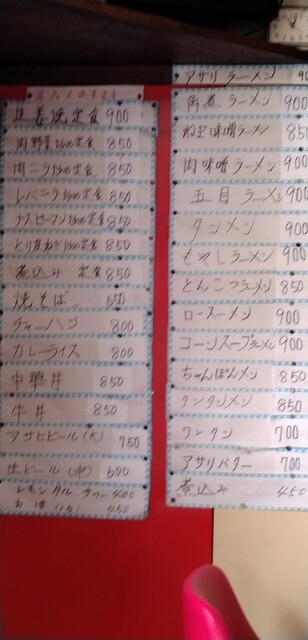 生姜焼定食 900
肉野菜炒め定食 850
肉ニラ炒め定食 850
レバニラ炒め定食 850
ナスピーマン炒め定食 850
定食 850
煮込み 定食 850
焼そば 650
チャーハン 800
カレーライス 800
中華丼 850
牛丼 850
アサヒビール(大) 750
生ビール(中) 600
レモンサワー 400
450
アサリラーメン
角煮ラーメン 900
ねぎ味噌ラーメン 850
肉味噌ラーメン 900
五目ラーメン 900
タンメン 900
もやしラーメン 900
とんこつラーメン 850
ロースーメン 900
コーンスープラーメン 900
ちゃんぽんメン 850
タンタンメン 850
ワンタン 700
アサリバター 700
煮込み 450